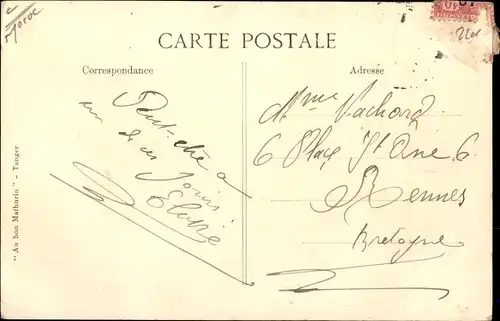 Maroc
CARTE POSTALE
Correspondance
Adresse
10
Peut-être à
un de ces jours
Mme Vachard
6 Place St Anne 6
Rennes
Bretagne
"Au bon Mathurin" - Tanger